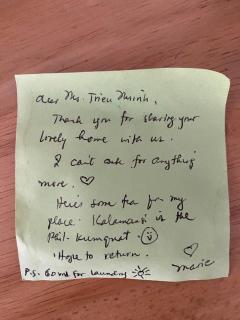 dear Ms. Trieu
Thank you for sharing your
lovely home with us.
I can't ask for anything
more. ♡
Here's some tea fr. my
place. Kalamansi is the
Phil. kumquat. ☺
I hope to return. ♡
P.S. 60 VND for laundry
marie